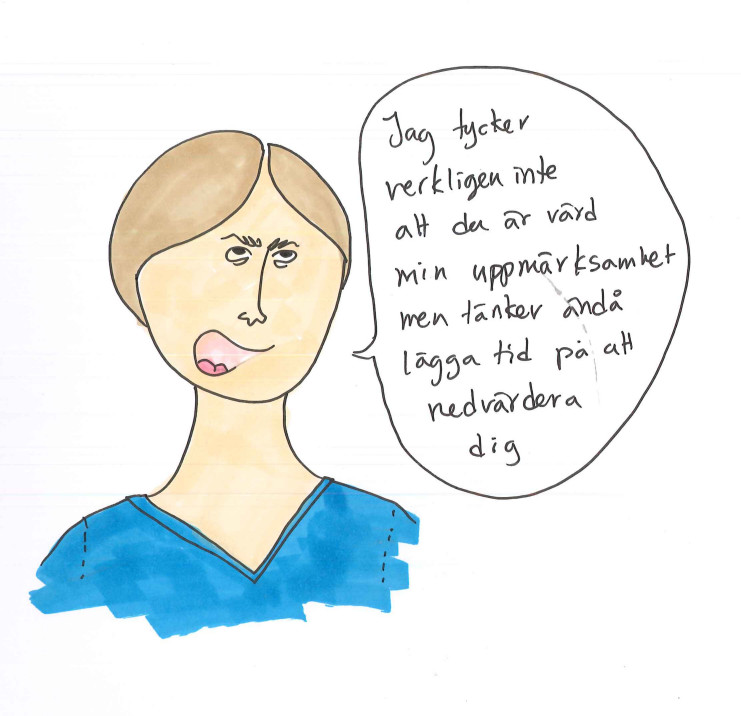 Jag tycker
verkligen inte
att du är värd
min uppmärksamhet
men tänker ändå
lägga tid på att
nedvärdera
dig